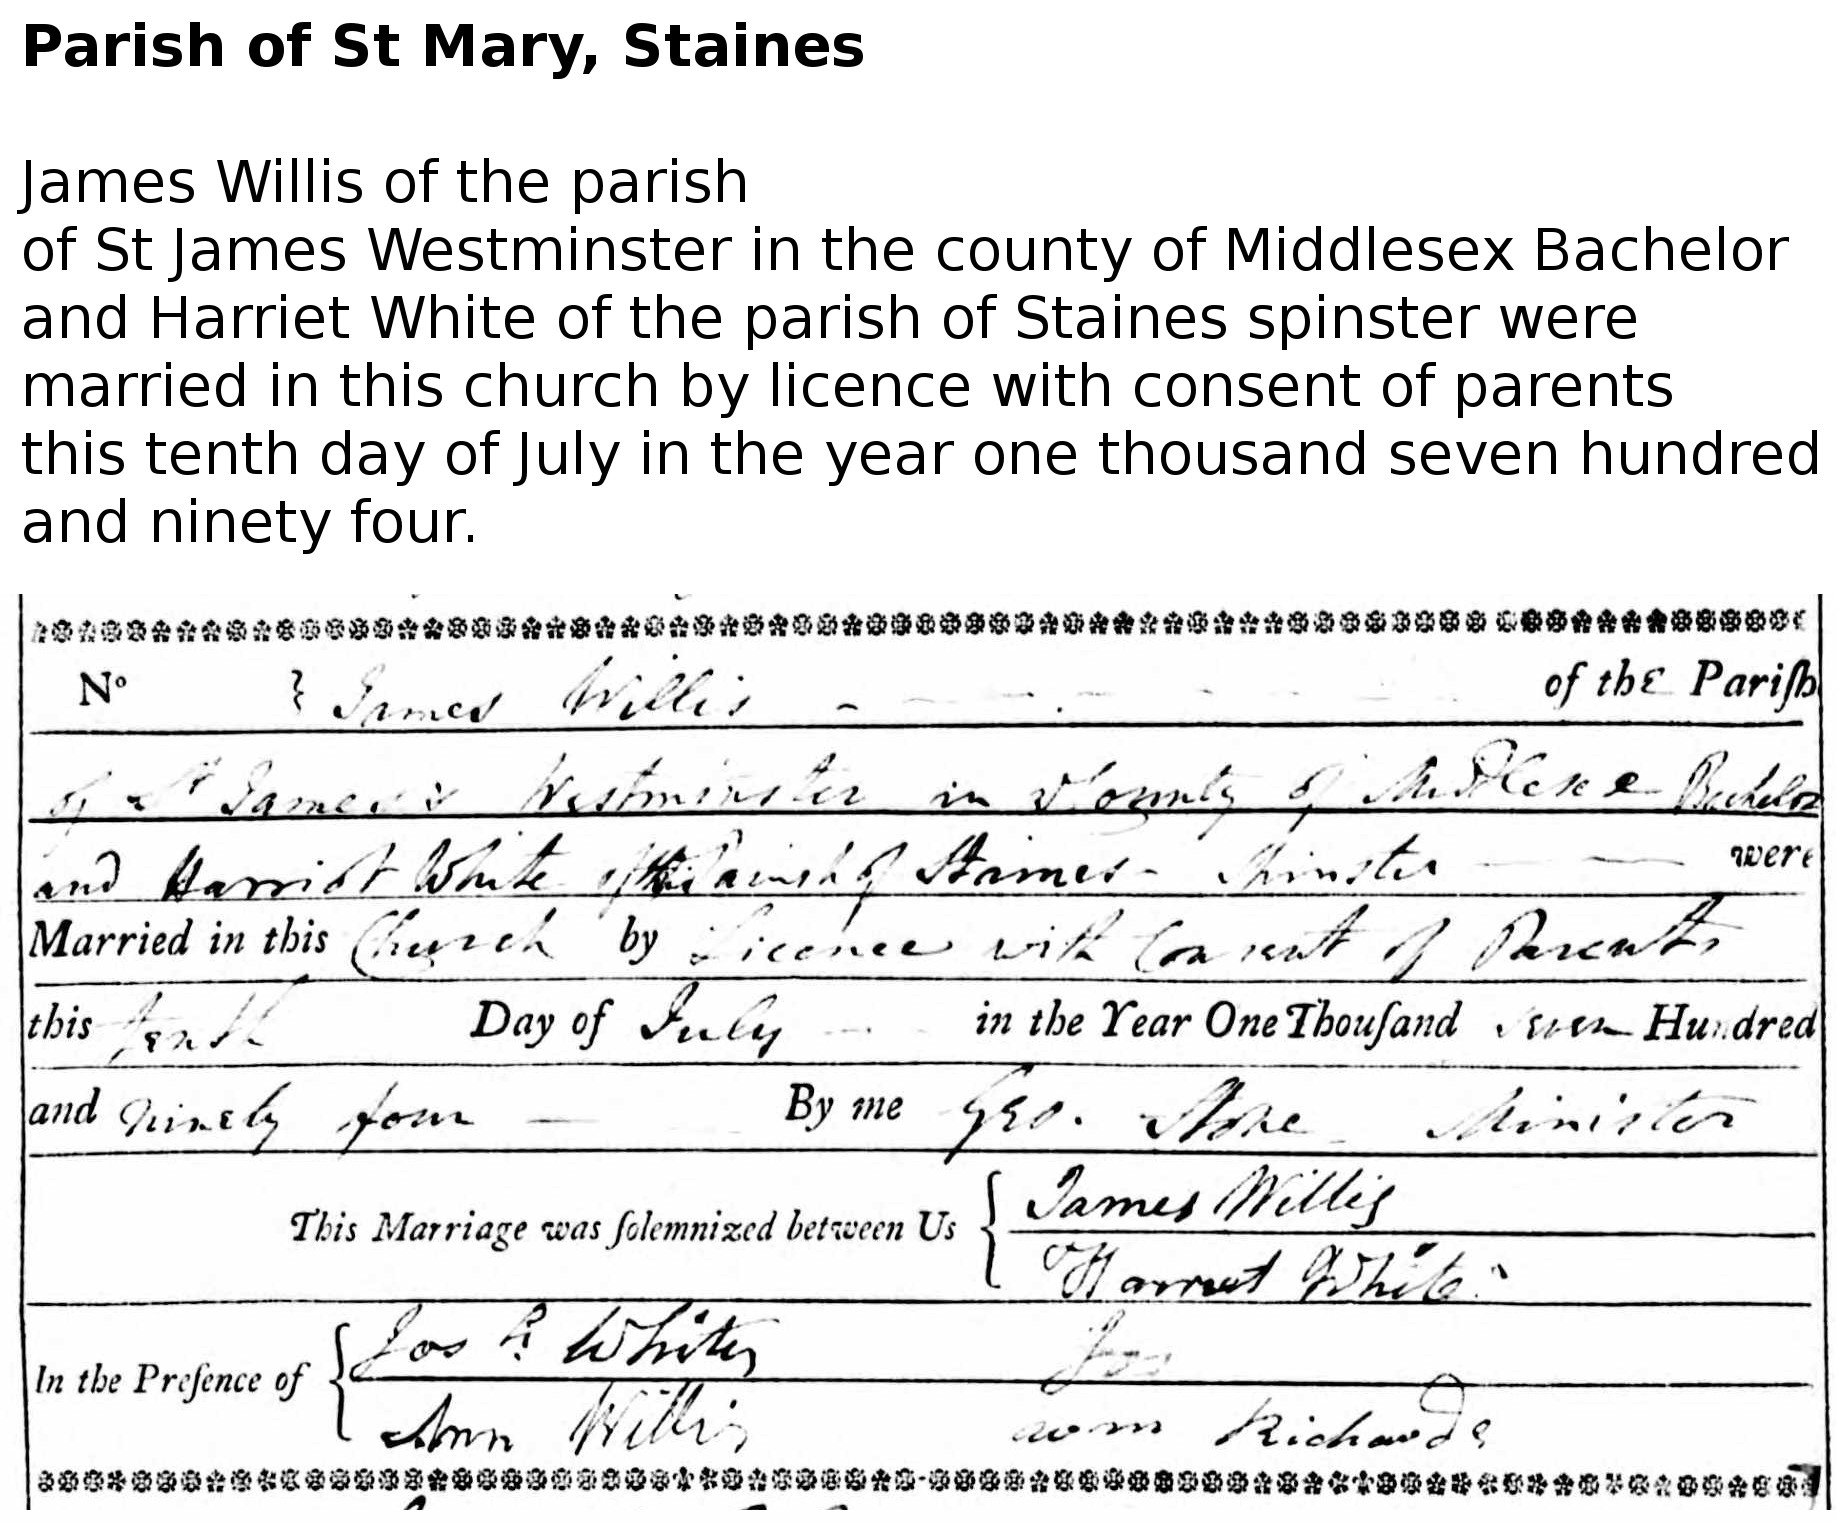 Parish of St Mary, Staines
James Willis of the parish
of St James Westminster in the county of Middlesex Bachelor
and Harriet White of the parish of Staines spinster were
married in this church by licence with consent of parents
this tenth day of July in the year one thousand seven hundred
and ninety four.
Nº } James Willis of the Pariſh
of St James's Westminster in County of Middlesex Bachelor
and Harriot White of the Parish of Staines Spinster were
Married in this Church by Licence with Consent of Parents
this tenth Day of July in the Year One Thouſand seven Hundred
and ninety four By me Geo. Minister
This Marriage was ſolemnized between Us { James Willis
Harriet White
In the Preſence of { Jos White Jos
Ann Willis Wm Richards